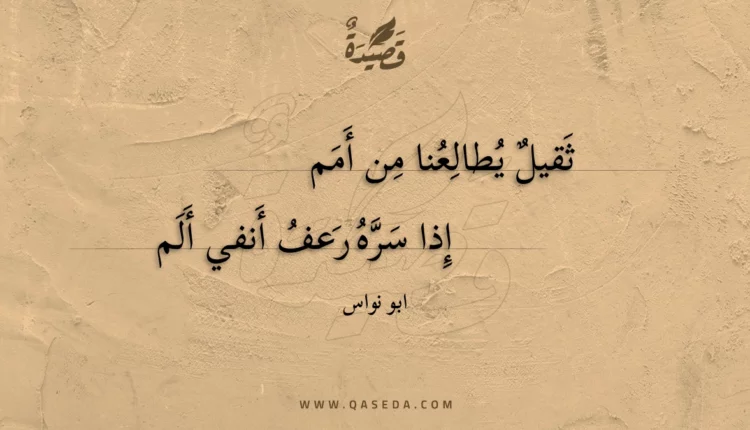 قَصِيدَةٌ
ثَقيلٌ يُطالِعُنا مِن أَمَم
إِذا سَرَّهُ رَعفُ أَنفي أَلَم
ابو نواس
WWW.QASEDA.COM